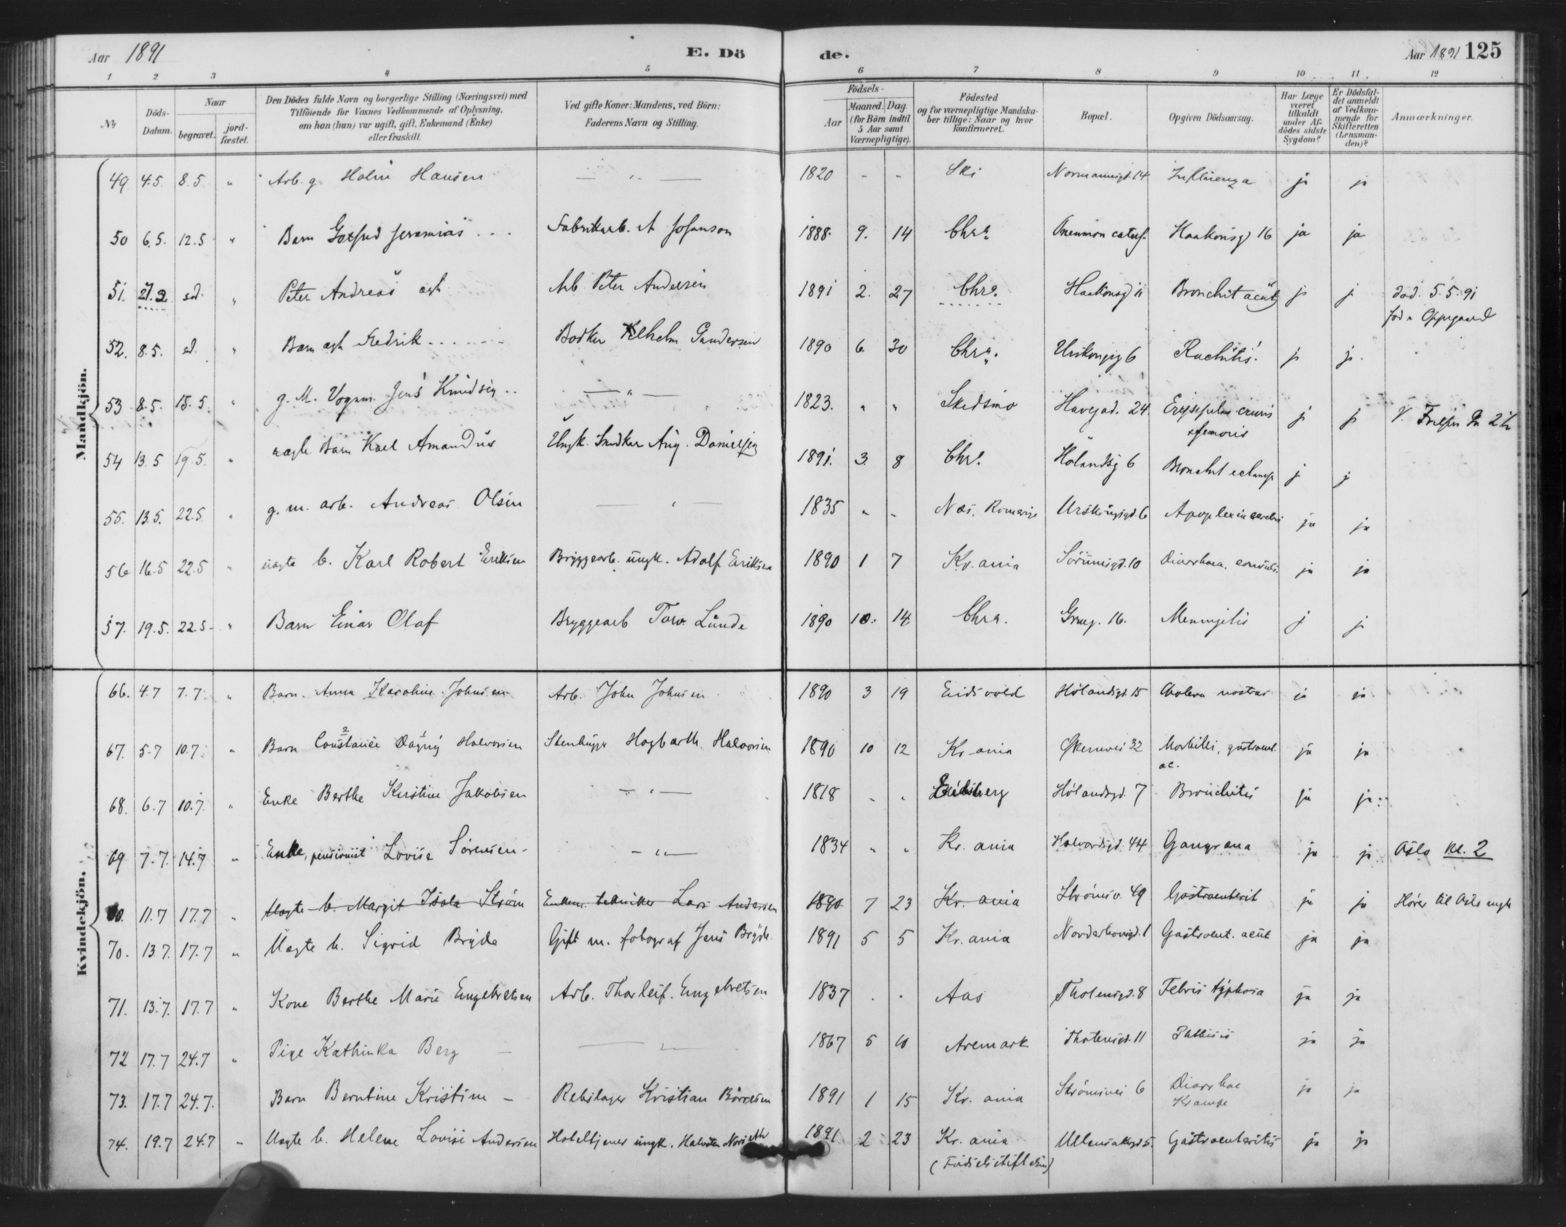 Aar 1891 E. Dö de. Aar 1891 125
1 2 3 4 5 6 7 8 9 10 11 12
№ Döds-Datum. Naar begravet. jord-fæstet. Den Dödes fulde Navn og borgerlige Stilling (Næringsvei) med Tilföiende for Voxnes Vedkommende af Oplysning, om han (hun) var ugift, gift, Enkemand (Enke) eller fraskilt. Ved gifte Koner: Mandens, ved Börn: Faderens Navn og Stilling. Födsels- Aar Maaned. Dag (for Börn indtil 5 Aar samt Værnepligtige). Födested og for værnepligtige Mandskaber tillige: Naar og hvor konfirmeret. Bopæl. Opgiven Dödsaarsag. Har Læge været tilkaldt under Afdödes sidste Sygdom? Er Dödsfaldet anmeldt af Vedkommende for Skifteretten (Lensmanden)? Anmærkninger.
Mandkjön.
49 4.5. 8.5. " Arb. g. Halvor Hansen — " — 1820 - - Ski Normannsgt. 14 Influenza ja ja
50 6.5. 12.5 " Barn Gotfred Jeremias Fabrikarb. A Johanson 1888. 9. 14 Chra. Haakonsg 16 ja ja
51. 27.2 " Peter Andreas ægt Arb Peter Andersen 1891 2. 27 Chra. Haakonsg 11 Bronchit acut j j död. 5.5.91
52. 8.5. " Barn ægt Fredrik Bödker Gundersen 1890 6 30 Chra. Urskougsg 6 Rachitis. j j.
53 8.5. 15.5. " g. M. Vognm. Jens Knudsen — " — 1823. " " Skedsmo Havegad. 24 j j
54 13.5 19.5. " uægte Barn Karl Amandus Ungk. Snedker Aug. Danielsen 1891. 3. 8 Chr. Hölandsg 6 j j
55. 13.5. 22.5. " g. m. arb. Andreas Olsen — " — 1835 " - Næs. Romerige Urskougsgd. 6 ja ja
56 16.5 22.5 " uægte b. Karl Robert Eriksen Bryggearb. ungk. Adolf Eriksen 1890 1 7 Kr.ania Sörumsgd. 10 Diarrhoea. ja ja
57. 19.5. 22.5. " Barn Einar Olaf Bryggearb Lunde 1890 10. 14 Chra. Grueg. 16. Meningitis j j.
Kvindekjön.
66. 4.7 7.7. " Barn. Anna Karoline Johnsen Arb. John Johnsen 1890 3 19 Eidsvold Hölandsgd. 15 Cholera nostras ja ja
67. 5.7 10.7. " Barn Constance Dagny Halvorsen Stenhugger Hagbarth Halvorsen 1890 10 12 Kr. ania Økernvei 32 Morbilli, gastroent. ac. ja ja
68. 6.7 10.7. " Enke Berthe Kirstine Jakobsen — " — 1818 " " Hölandsgd. 7 Bronchitis ja ja
69 7.7. 14.7 " Enke, pensionist Lovise Sörensen — " — 1834 " " Kr. ania Halvardsgt. 44 Gangræna ja ja Oslo kl. 2
11.7 17.7 " Uægte b. Margit Isola Ström Enkem. tekniker Lars Andersen 1890 7 23 Kr. ania Strömsv. 49 Gastroenterit ja ja Hörer til Oslo mgh
70. 13.7. 17.7 " Uægte b. Sigrid Bryde Gift m. fotograf Jens Bryde 1891 5 5 Kr. ania Gastroent. acut ja ja
71. 13.7. 17.7 " Kone Berthe Marie Engebretsen Arb. Thorleif Engebretsen 1837 . . Aas Thotensgd. 8 Febris typhosa ja ja
72 17.7 24.7 " Pige Kathinka Berg — " — 1867 5 10 Aremark Thotensgt. 11 Phthisis ja ja
73. 17.7 24.7. Barn Berntine Kristine - Rebslager Kristian Börresen 1891 1 15 Kr. ania Strömsvei 6 Diarrhoe Krampe ja ja
74. 19.7 24.7 " Uægte b. Helene Lovise Andersen Hoteltjener ungk. Halvdan 1891 2 23 Kr. ania (Födselsstiftelsen) Gastroenteritis ja ja